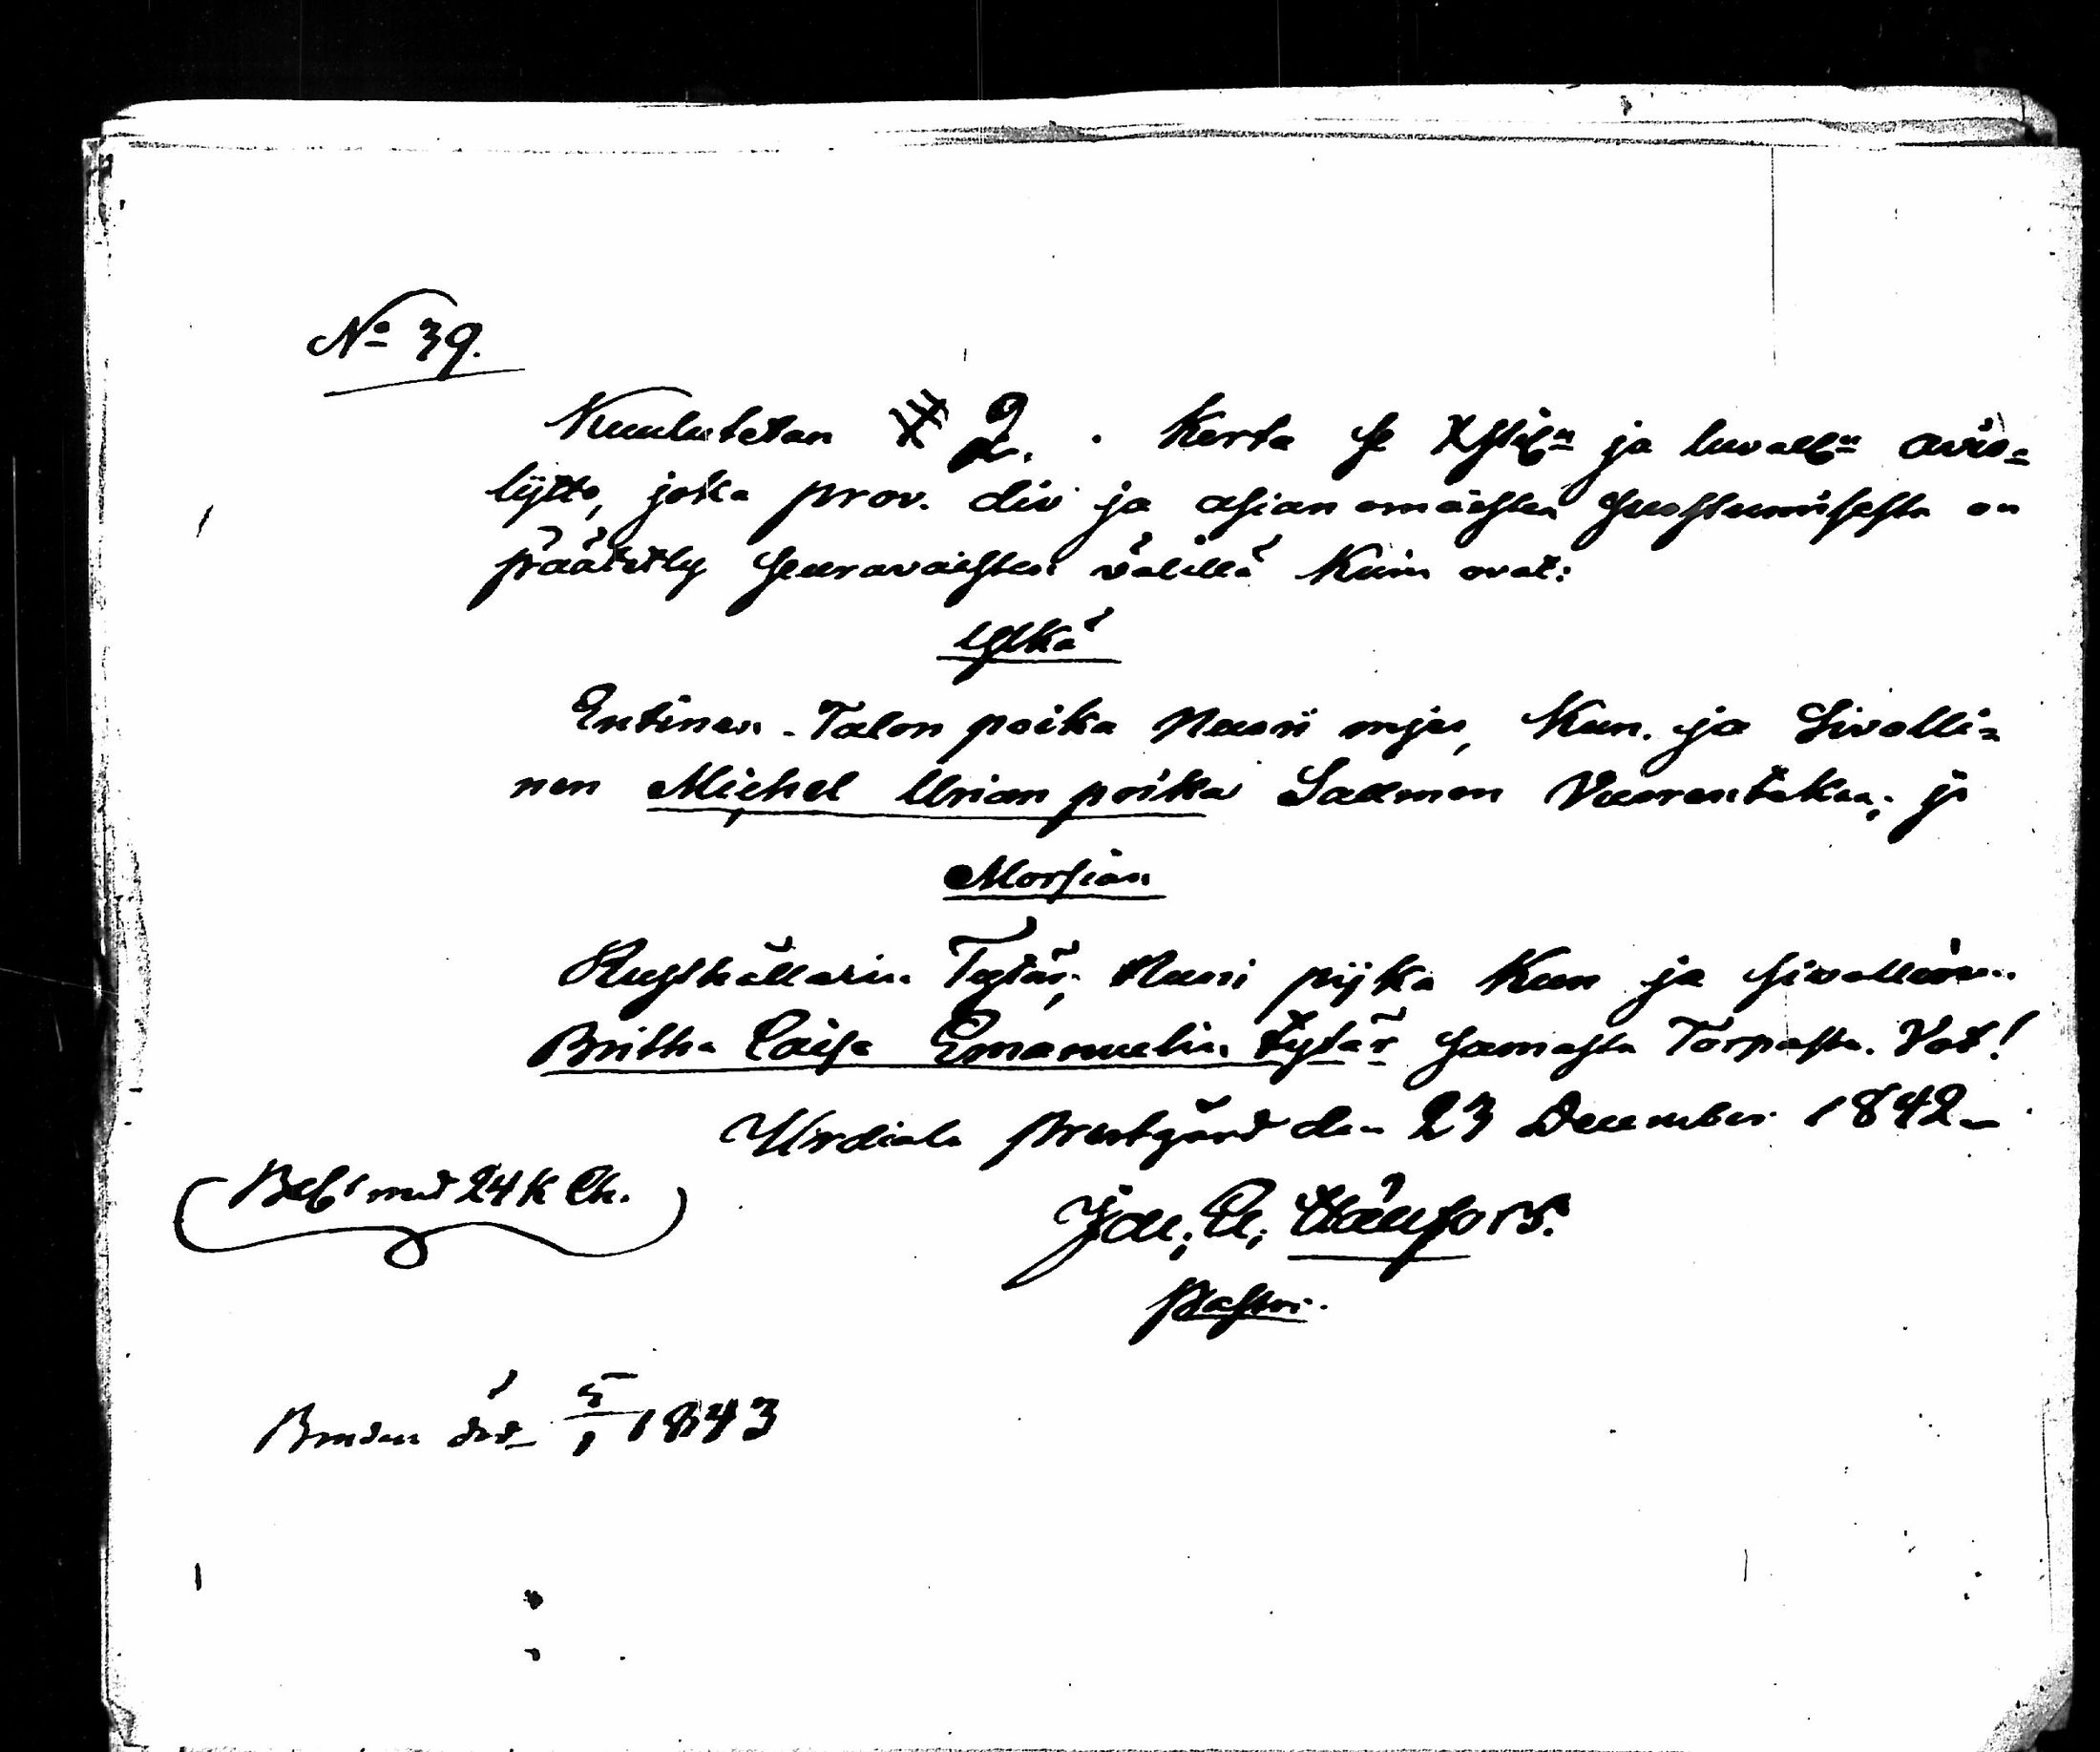 No 39.
Kuulutetan # 2. Kerta se Xstiln ja luvalln avio=
lijtto, joka prov. div ja asian omaisten suostumisesta on
päätetty seuravaisten välillä kuin ovat:
Ylkä
Entinen Talon poika Nuori mjes, Kun. ja Sivolli=
nen Michel Urian poika Salmen Vuorentakaa; ja
Morsian
Rusthållarin Tytär, Nuori pijka Kun ja sivollinen
Britha Caisa Emanuelin tytär samasta Torpasta. Vot!
Urdiala Prestgård den 23 December 1842
Bel. med 24 K
Joh. Hällfors.
Pastori.
Bruden död 5/1 1843